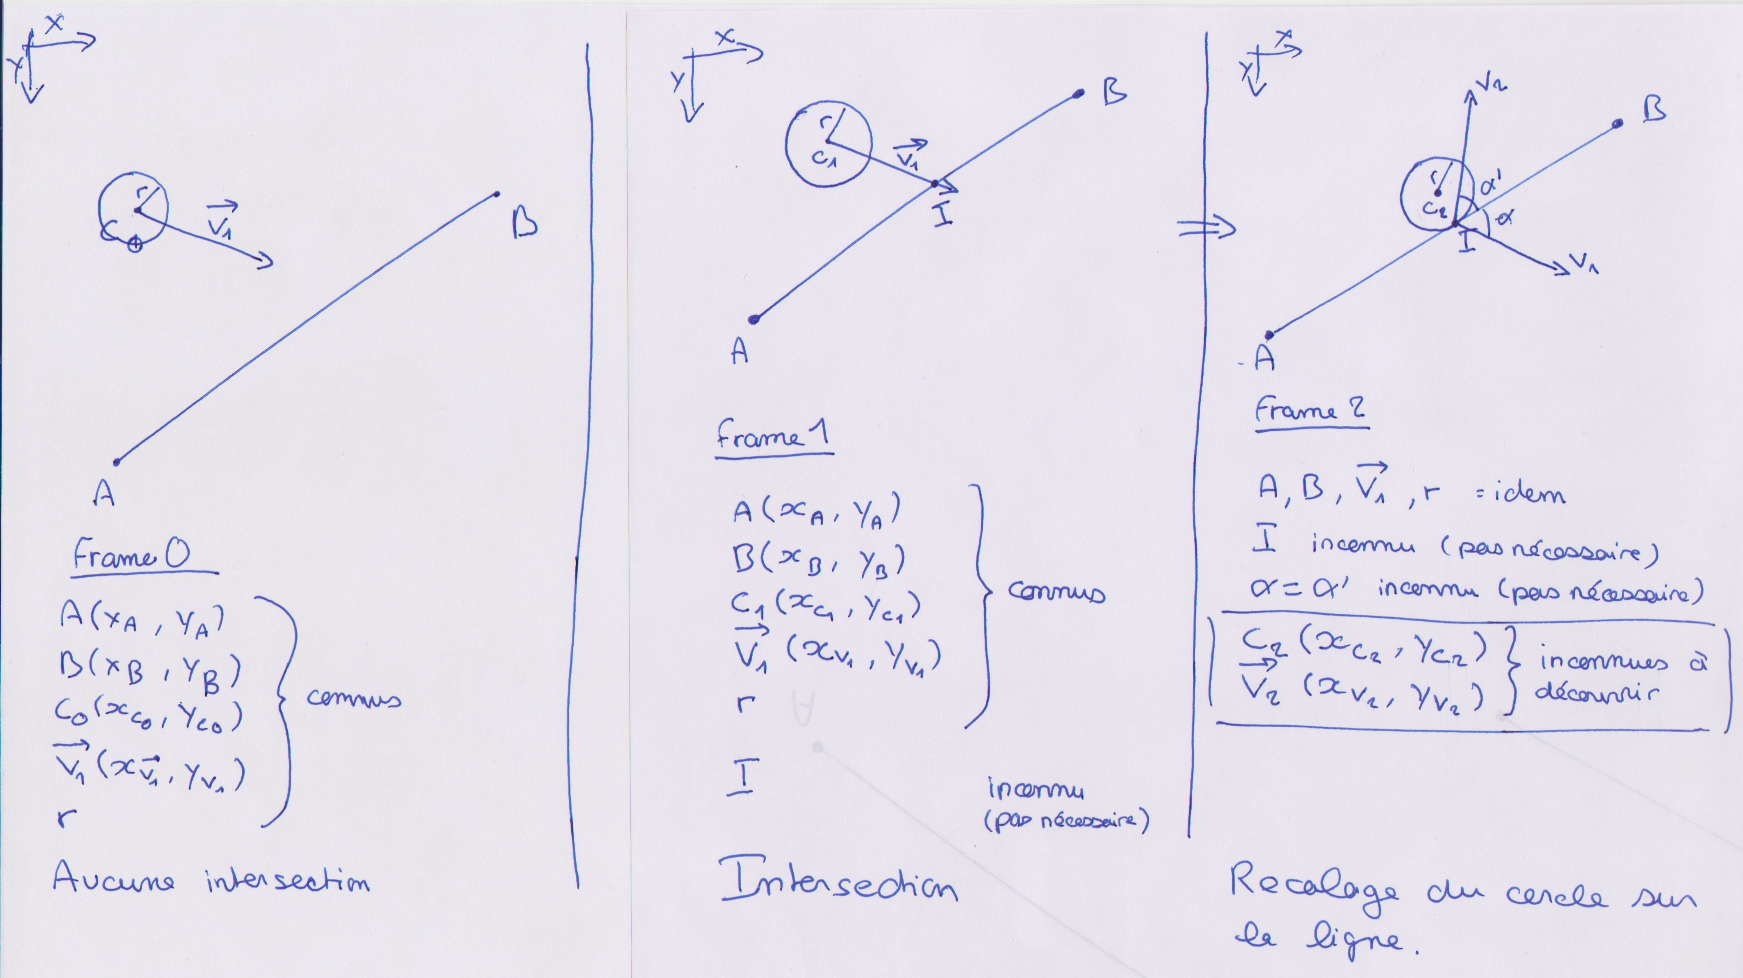 X
Y
r
C0
V1
B
A
Frame 0
A(xA, yA)
B(xB, yB)
C0(xC0, yC0)
V1(xV1, yV1)
r
connus
Aucune intersection
X
Y
r
C1
V1
I
B
A
Frame 1
A(xA, yA)
B(xB, yB)
C1(xC1, yC1)
V1(xV1, yV1)
r
connus
I
inconnu
(pas nécessaire)
Intersection
X
Y
V2
B
r
C2
α'
α
I
V1
A
Frame 2
A, B, V1, r = idem
I inconnu (pas nécessaire)
α = α' inconnu (pas nécessaire)
C2(xC2, yC2)
V2(xV2, yV2)
inconnues à
découvrir
Recalage du cercle sur
la ligne.